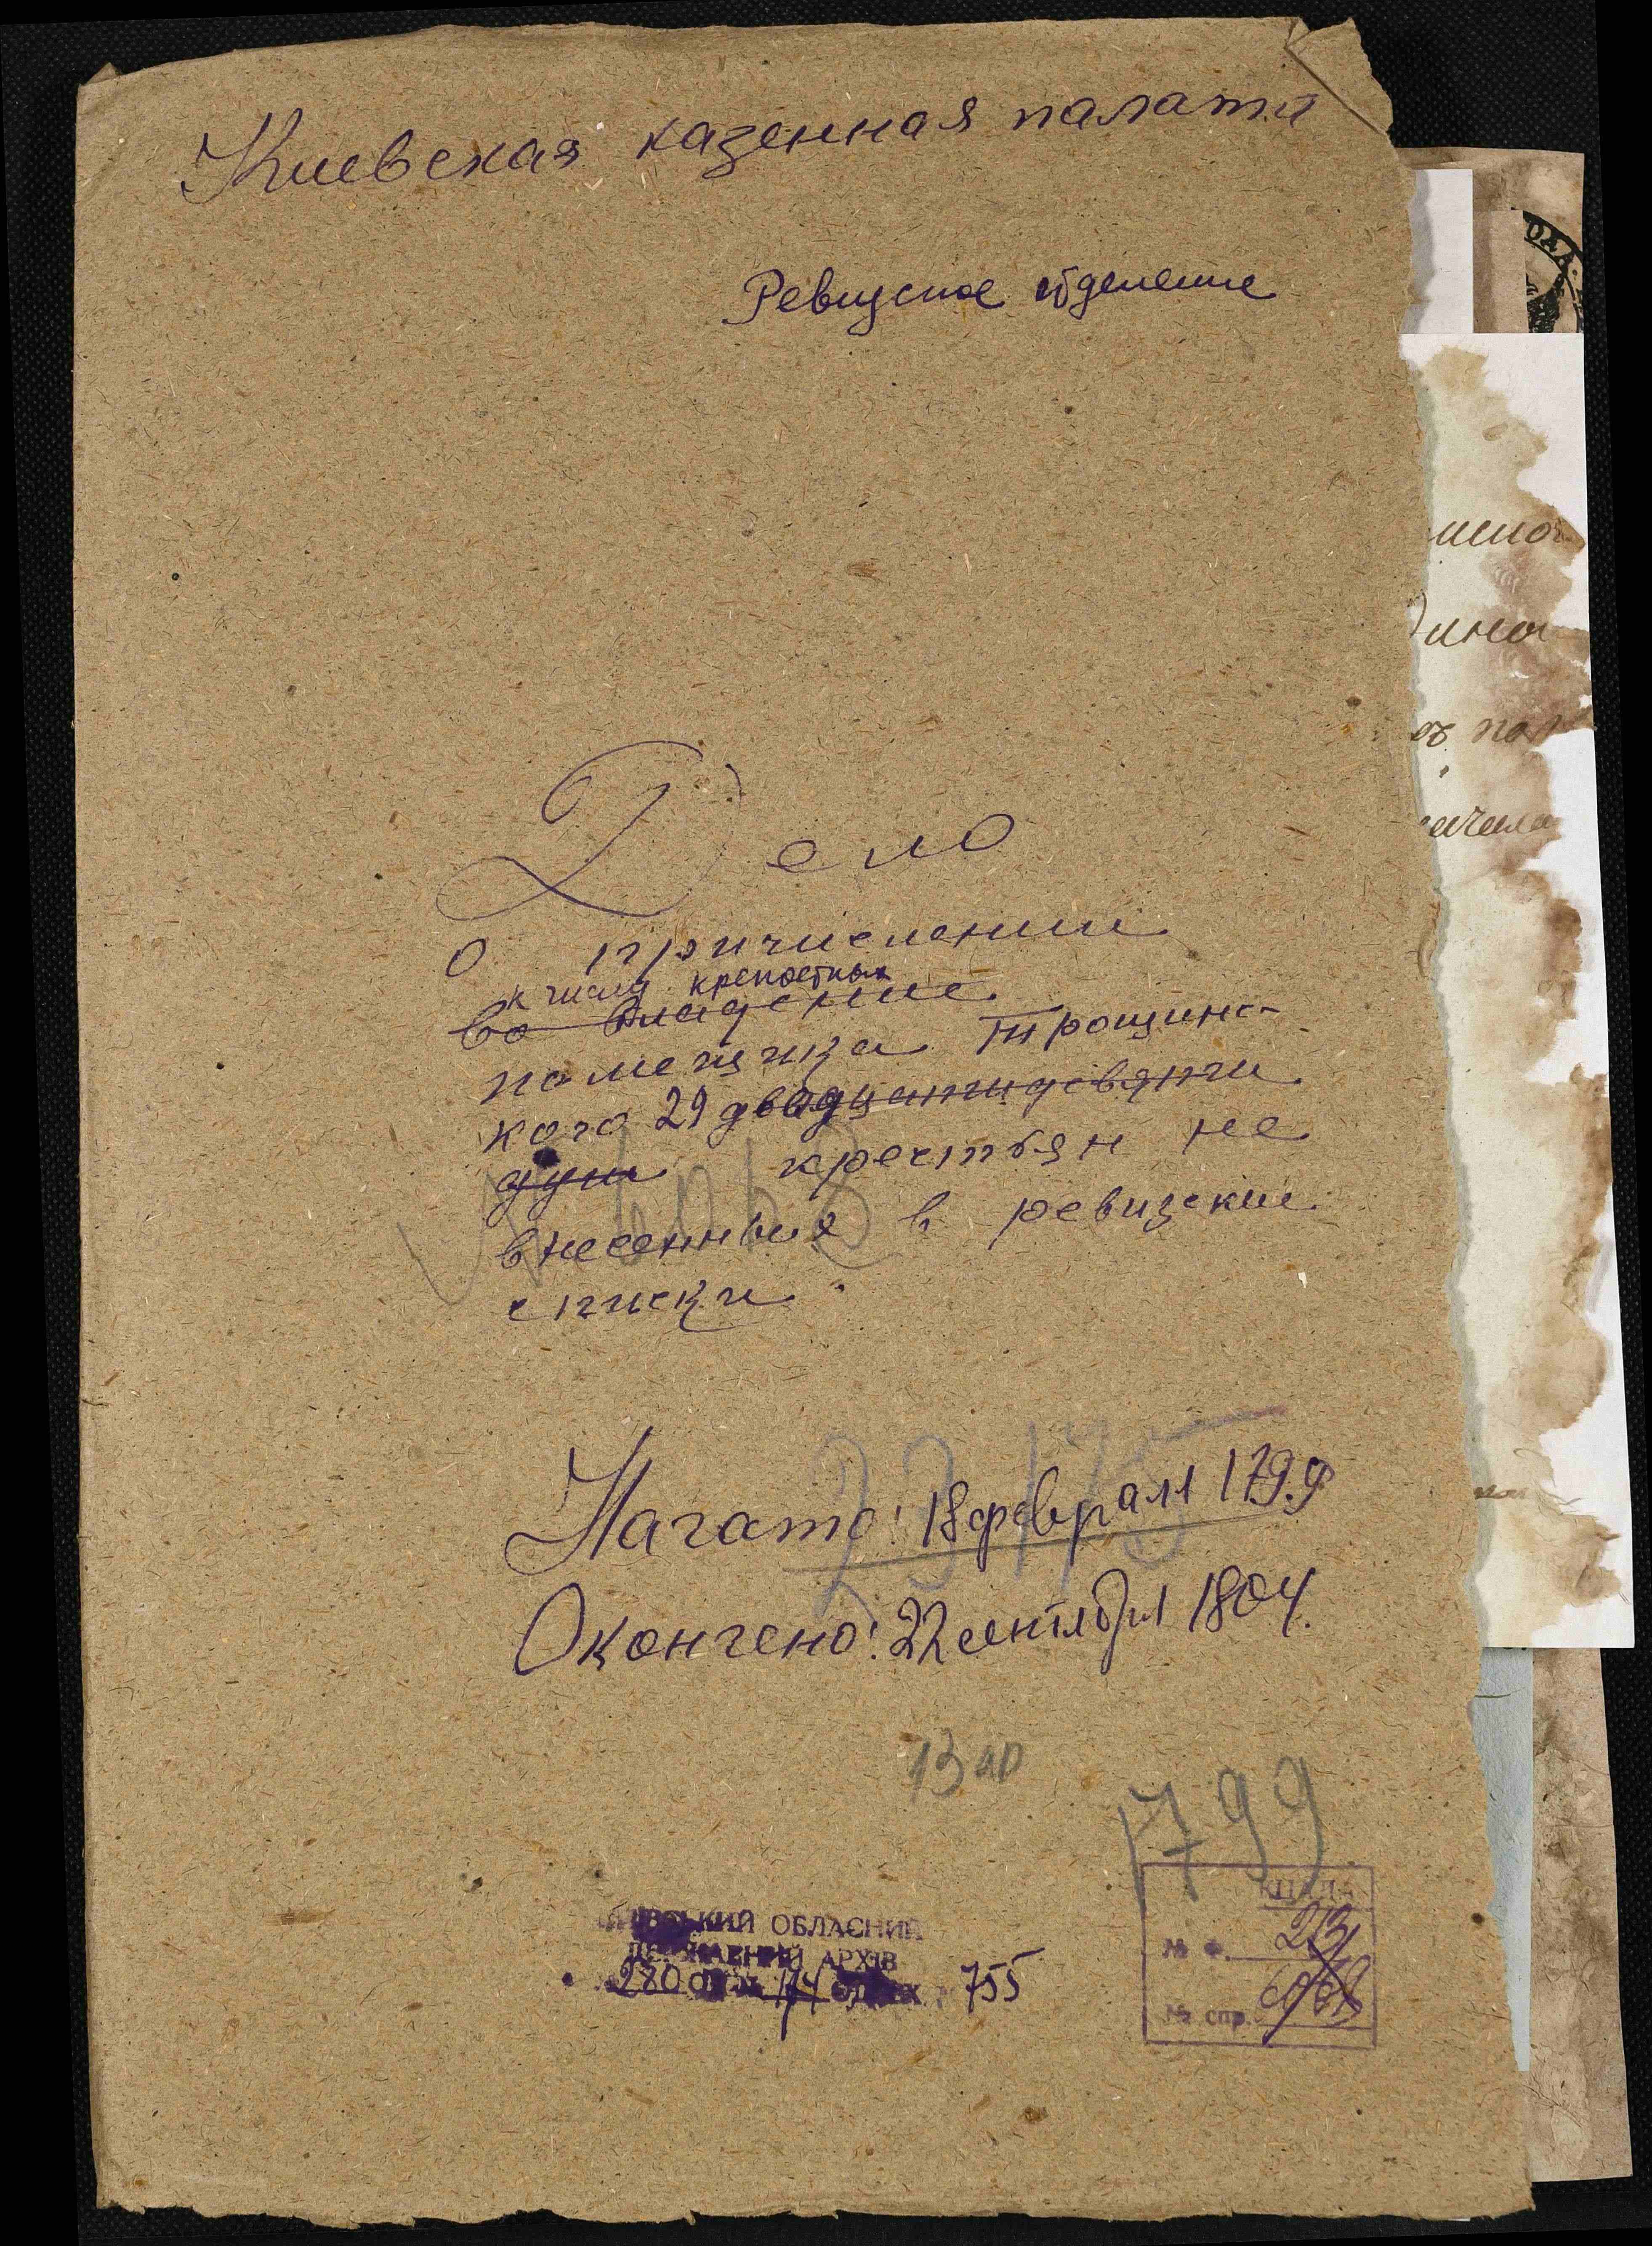 Киевская казенная палата
Ревизское отделение
Дело
о причислении
к числу крепостных
во владение
помещика Трощинс-
кого 29 двадцати девяти
душ крестьян не
внесенных в ревизские
списки
Начато: 18 февраля 1799
Окончено: 22 сентября 1804.
1799
КЦАДА
ОБЛАСНИЙ
ДЕРЖАВНИЙ АРХІВ
280 174 755
№ ф.
№ спр.